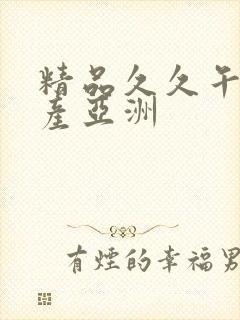 精品久久午
産亞洲
有煙的幸福男